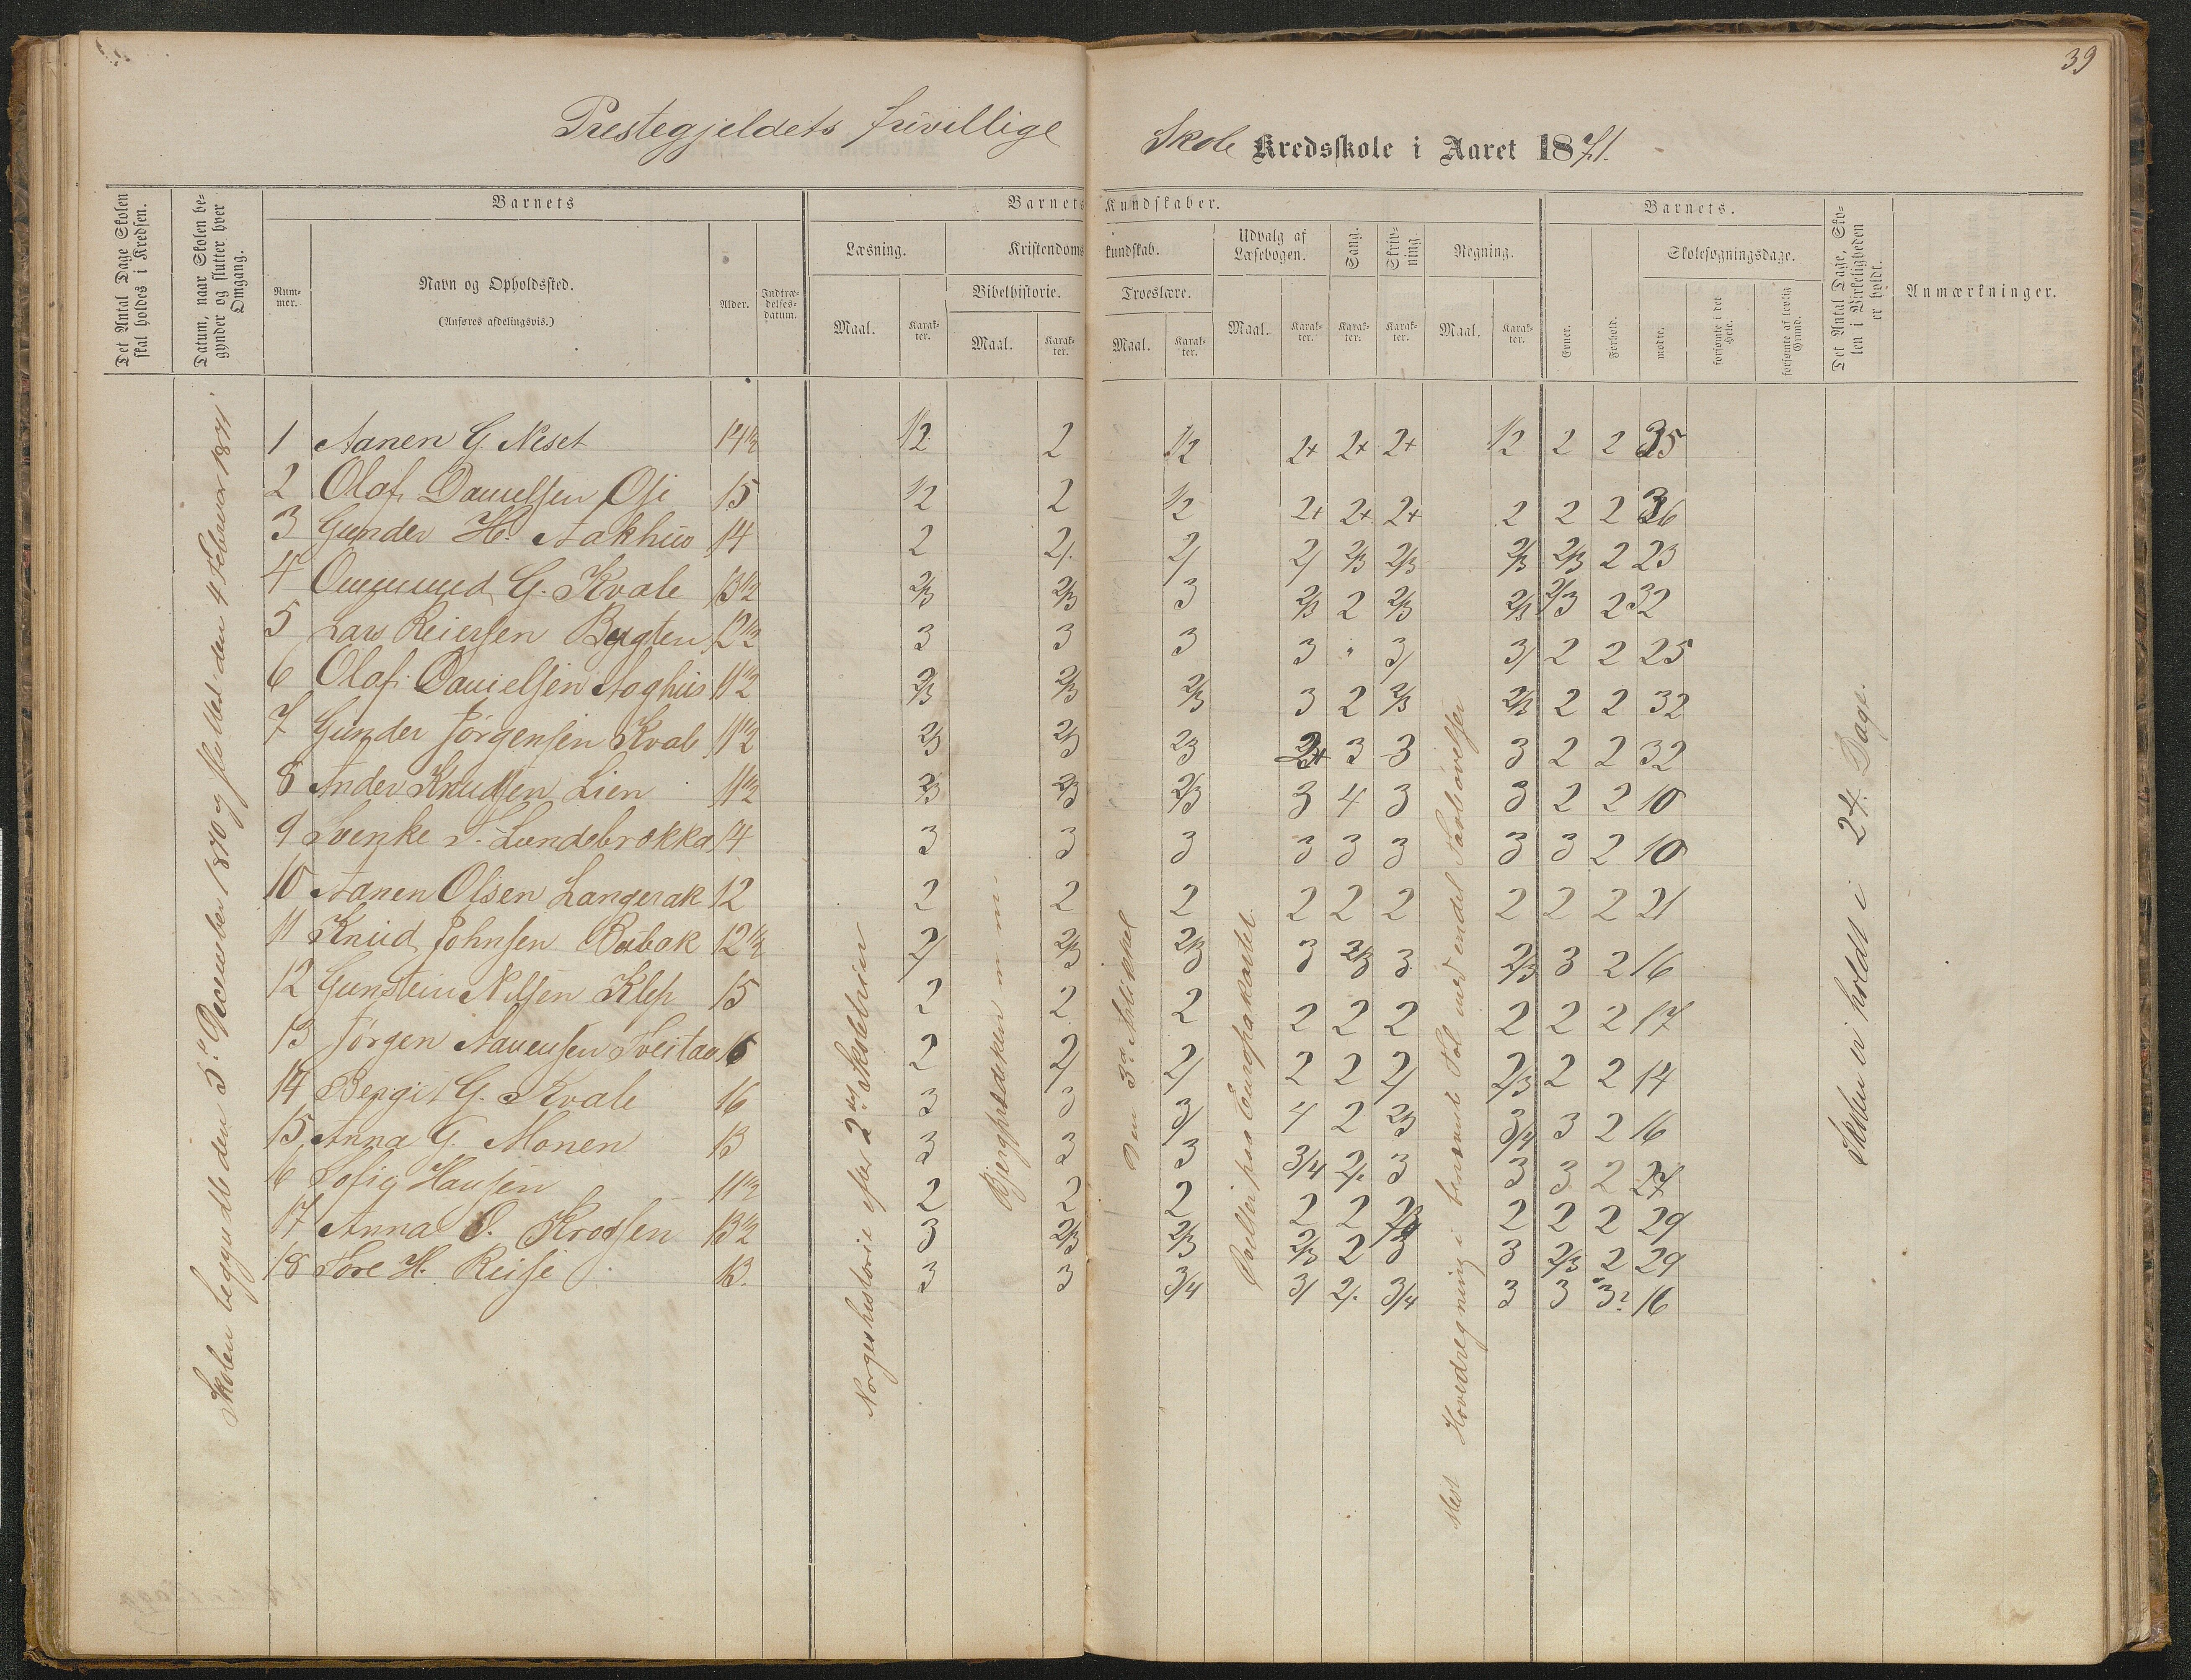 39
Prestegjeldets frivillige Skole Kredsskole i Aaret 1871.
Det Antal Dage Skolen skal holdes i Kredsen.
Datum, naar Skolen begynder og slutter hver Omgang.
Barnets
Nummer.
Navn og Opholdssted.
(Anføres afdelingsvis.)
Alder.
Indtrædelsesdatum.
Barnets Kundskaber.
Læsning.
Maal. Karakter.
Kristendomskundskab.
Bibelhistorie.
Maal. Karakter.
Troeslære.
Maal. Karakter.
Udvalg af Læsebogen.
Maal. Karakter.
Sang.
Karakter.
Skrivning.
Karakter.
Regning.
Maal. Karakter.
Barnets.
Evner.
Forhold.
Skolesøgningsdage.
mødte.
forsømte i det Hele.
forsømte af lovlig Grund.
Det Antal Dage, Skolen i Virkeligheden er holdt.
Anmærkninger.
Skolen begyndte den 5te December 1870 og sluttet den 4 Februar 1871
1 Aanen G. Neset 14 1/2 1/2 2 1/2 2+ 2+ 2+ 1/2 2 2 35
2 Olaf Danielsen Ose 15 1/2 2 1/2 2+ 2+ 2+ 2 2 2 36
3 Gunder H. Aakhus 14 2 2/. 2/ 2/ 2/3 2/3 2/3 2/3 2 23
4 G. Kvale 13 1/2 2/3 2/3 3 2/3 2 2/3 2/3 2/3 2 32
5 Lars Reiersen Bygten 12 1/2 3 3 3 3 " 3/ 3/ 2 2 25
6 Olaf Danielsen Aaghus 11 1/2 2/3 2/3 2/3 3 2 2/3 2/3 2 2 32
7 Gunder Jørgensen Kvale 11 1/2 2/3 2/3 2/3 3 3 3 2 2 32
8 Anders Knudsen Lien 11 1/2 2/3 2/3 2/3 3 4 3 3 2 2 10
9 Svenke S. Lundebrokka 14 3 3 3 3 3 3 3 3 2 10
10 Aanen Olsen Langerak 12 2 2 2 2 2 2 2 2 2 21
11 Knud Johnsen 12 1/2 2/ 2/3 2/3 3 2/3 3 2/3 3 2 16
12 Gunstein Nilsen Klep 15 2 2 2 2 2 2 2 2 2 17
13 Jørgen Aanensen Sveitaa 16 2 2/ 2/ 2 2 2/ 2/3 2 2 14
14 Bergit G. Kvale 16 3 3 3/ 4 2 2/3 3/4 3 2 16
15 Anna G. Monen 13 3 3 3 3/4 2/. 3 3 3 2 27
16 Sofie Hansen 11 1/2 2 2 2 2 2 2 2 2 29
17 Anna O. Krossen 13 1/2 3 2/3 2/3 2/3 2 3 3 2/3 2 29
18 Tore H. Reise 13. 3 3 3/4 3/ 2/. 3/4 3 3 3? 16
Norgeshistorie efter 2den Skoletrin
Bjergprædiken m m
Den 3die Artikkel
Spillet paa Europakartet
Mest Hovedregning i benævnte Tal med endel Tavleøvelser
Skolen er holdt i 24 Dage.